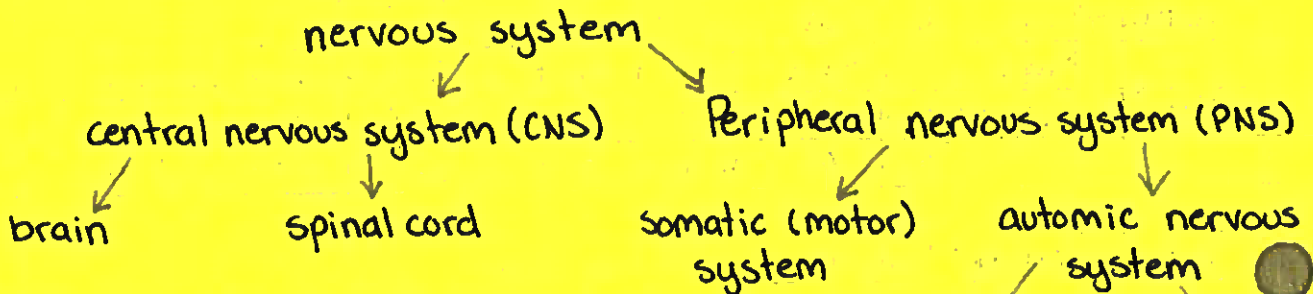 nervous system
central nervous system (CNS)
Peripheral nervous system (PNS)
brain
spinal cord
somatic (motor)
system
automic nervous
system